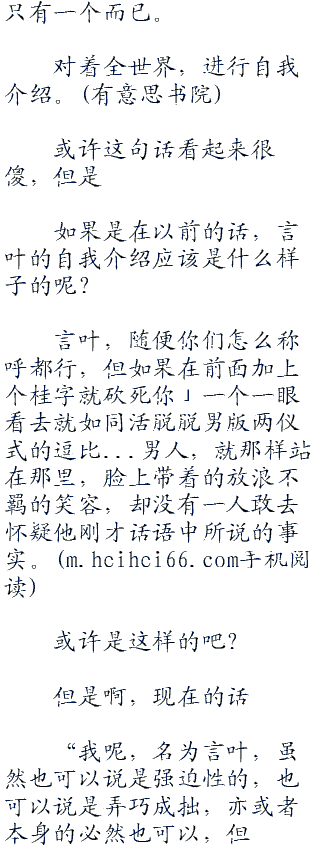 只有一个而已。
对着全世界，进行自我
介绍。(有意思书院)
或许这句话看起来很
傻，但是
如果是在以前的话，言
叶的自我介绍应该是什么样
子的呢？
言叶，随便你们怎么称
呼都行，但如果在前面加上
个桂字就砍死你」一个一眼
看去就如同活脱脱男版两仪
式的逗比...男人，就那样站
在那里，脸上带着的放浪不
羁的笑容，却没有一人敢去
怀疑他刚才话语中所说的事
实。(m.hcihci66.com手机阅
读)
或许是这样的吧？
但是啊，现在的话
“我呢，名为言叶，虽
然也可以说是强迫性的，也
可以说是弄巧成拙，亦或者
本身的必然也可以，但